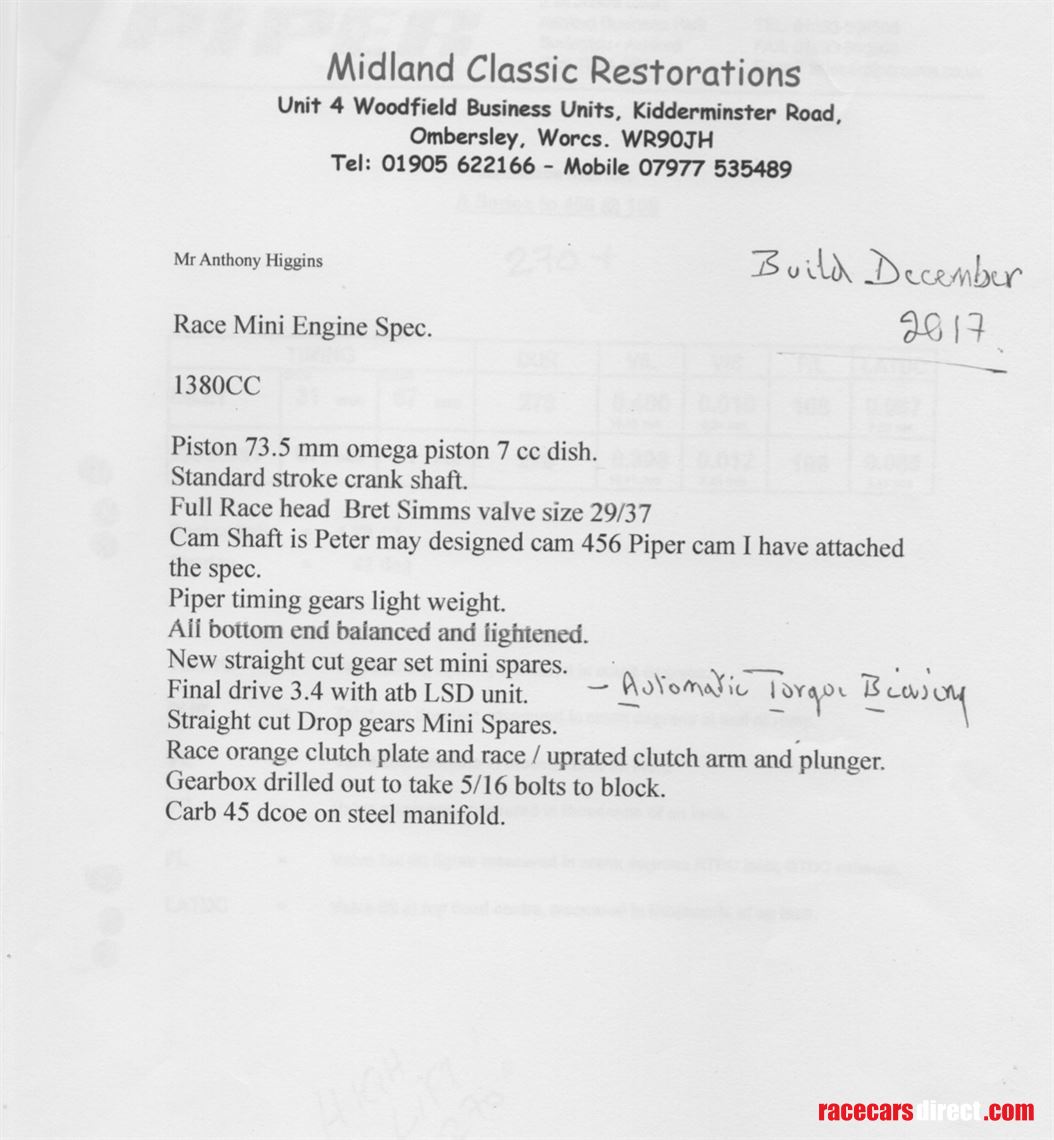 PIPER
Midland Classic Restorations
Unit 4 Woodfield Business Units, Kidderminster Road,
Ombersley, Worcs. WR90JH
Tel: 01905 622166 - Mobile 07977 535489
A Series to 456 @ 108
270 +
Mr Anthony Higgins
Build December
2017
Race Mini Engine Spec.
1380CC
TIMING DUR V/L V/C F/L LATDC
Piston 73.5 mm omega piston 7 cc dish.
Standard stroke crank shaft.
Full Race head Bret Simms valve size 29/37
Cam Shaft is Peter may designed cam 456 Piper cam I have attached
the spec.
Piper timing gears light weight.
All bottom end balanced and lightened.
New straight cut gear set mini spares.
Final drive 3.4 with atb LSD unit. - Automatic Torque Biasing
Straight cut Drop gears Mini Spares.
Race orange clutch plate and race / uprated clutch arm and plunger.
Gearbox drilled out to take 5/16 bolts to block.
Carb 45 dcoe on steel manifold.
racecarsdirect.com